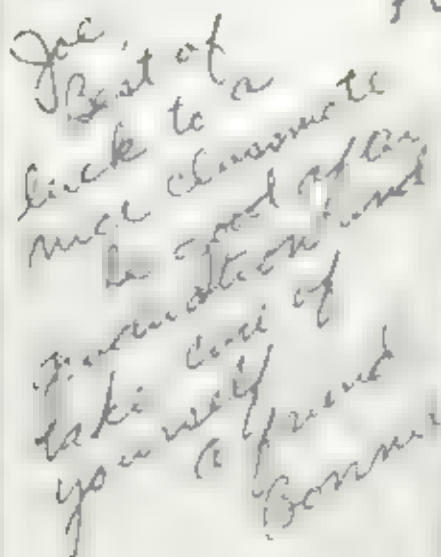 Joe
Best of
luck to a
nice classmate
be good after
graduation and
take care of
yourself
a friend
Bonnie